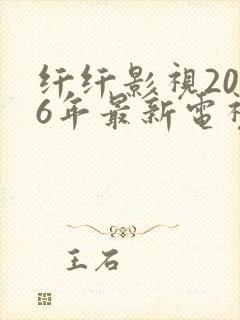 纤纤影視20
6年最新電視
王石